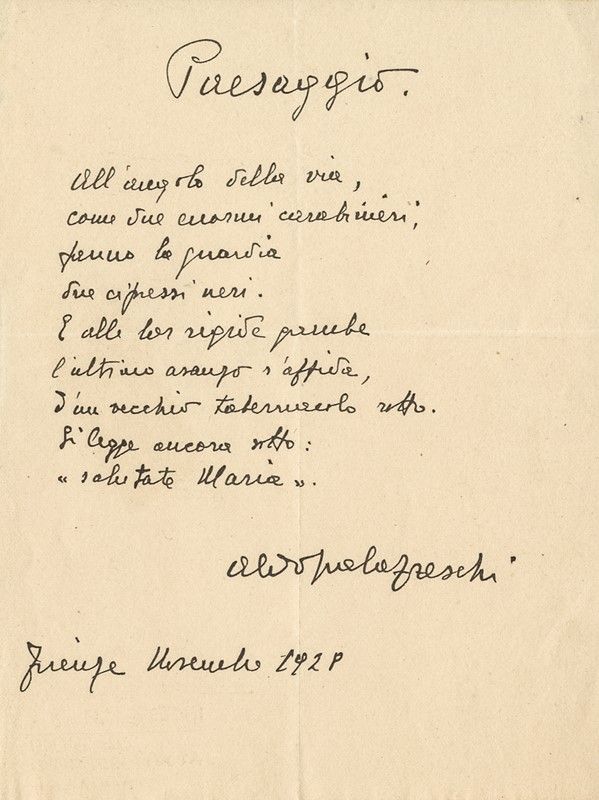 Paesaggio.
All'angolo della via,
come due enormi carabinieri,
fanno la guardia
due cipressi neri.
E alle lor rigide gambe
l'ultimo avanzo s'affida,
d'un vecchio tabernacolo rotto.
Si legge ancora sotto:
« salutate Maria ».
Aldo Palazzeschi
Firenze Novembre 1928